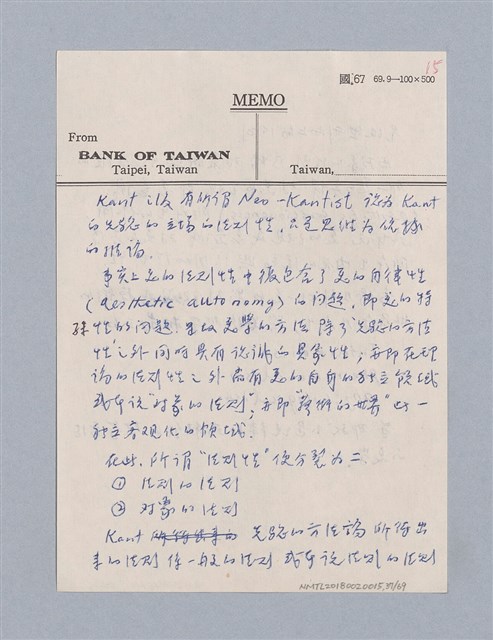 15
國.67 69.9—100×500
MEMO
From
BANK OF TAIWAN
Taipei, Taiwan
Taiwan,
Kant 以後有所謂 Neo-Kantist 認為 Kant
的先驗的立場的法則性，只是思惟為依據
的推論。
事實上美的法則性中後包含了美的自律性
(aesthetic autonomy) 的問題，即美的特
殊性的問題，是故美學的方法除了"先驗的方法
性"之外同時具有認識的具象性；亦即在理
論的法則性之外尚有美的自身的獨立領域
或者說"對象的法則"；亦即"藝術的世界"此一
獨立客觀化的領域。
在此，所謂"法則性"便分裂為二
① 法則的法則
② 對象的法則
Kant 先驗的方法論所得出
來的法則係一般的法則或者說法則的法則
NMTL20180020015,37/69